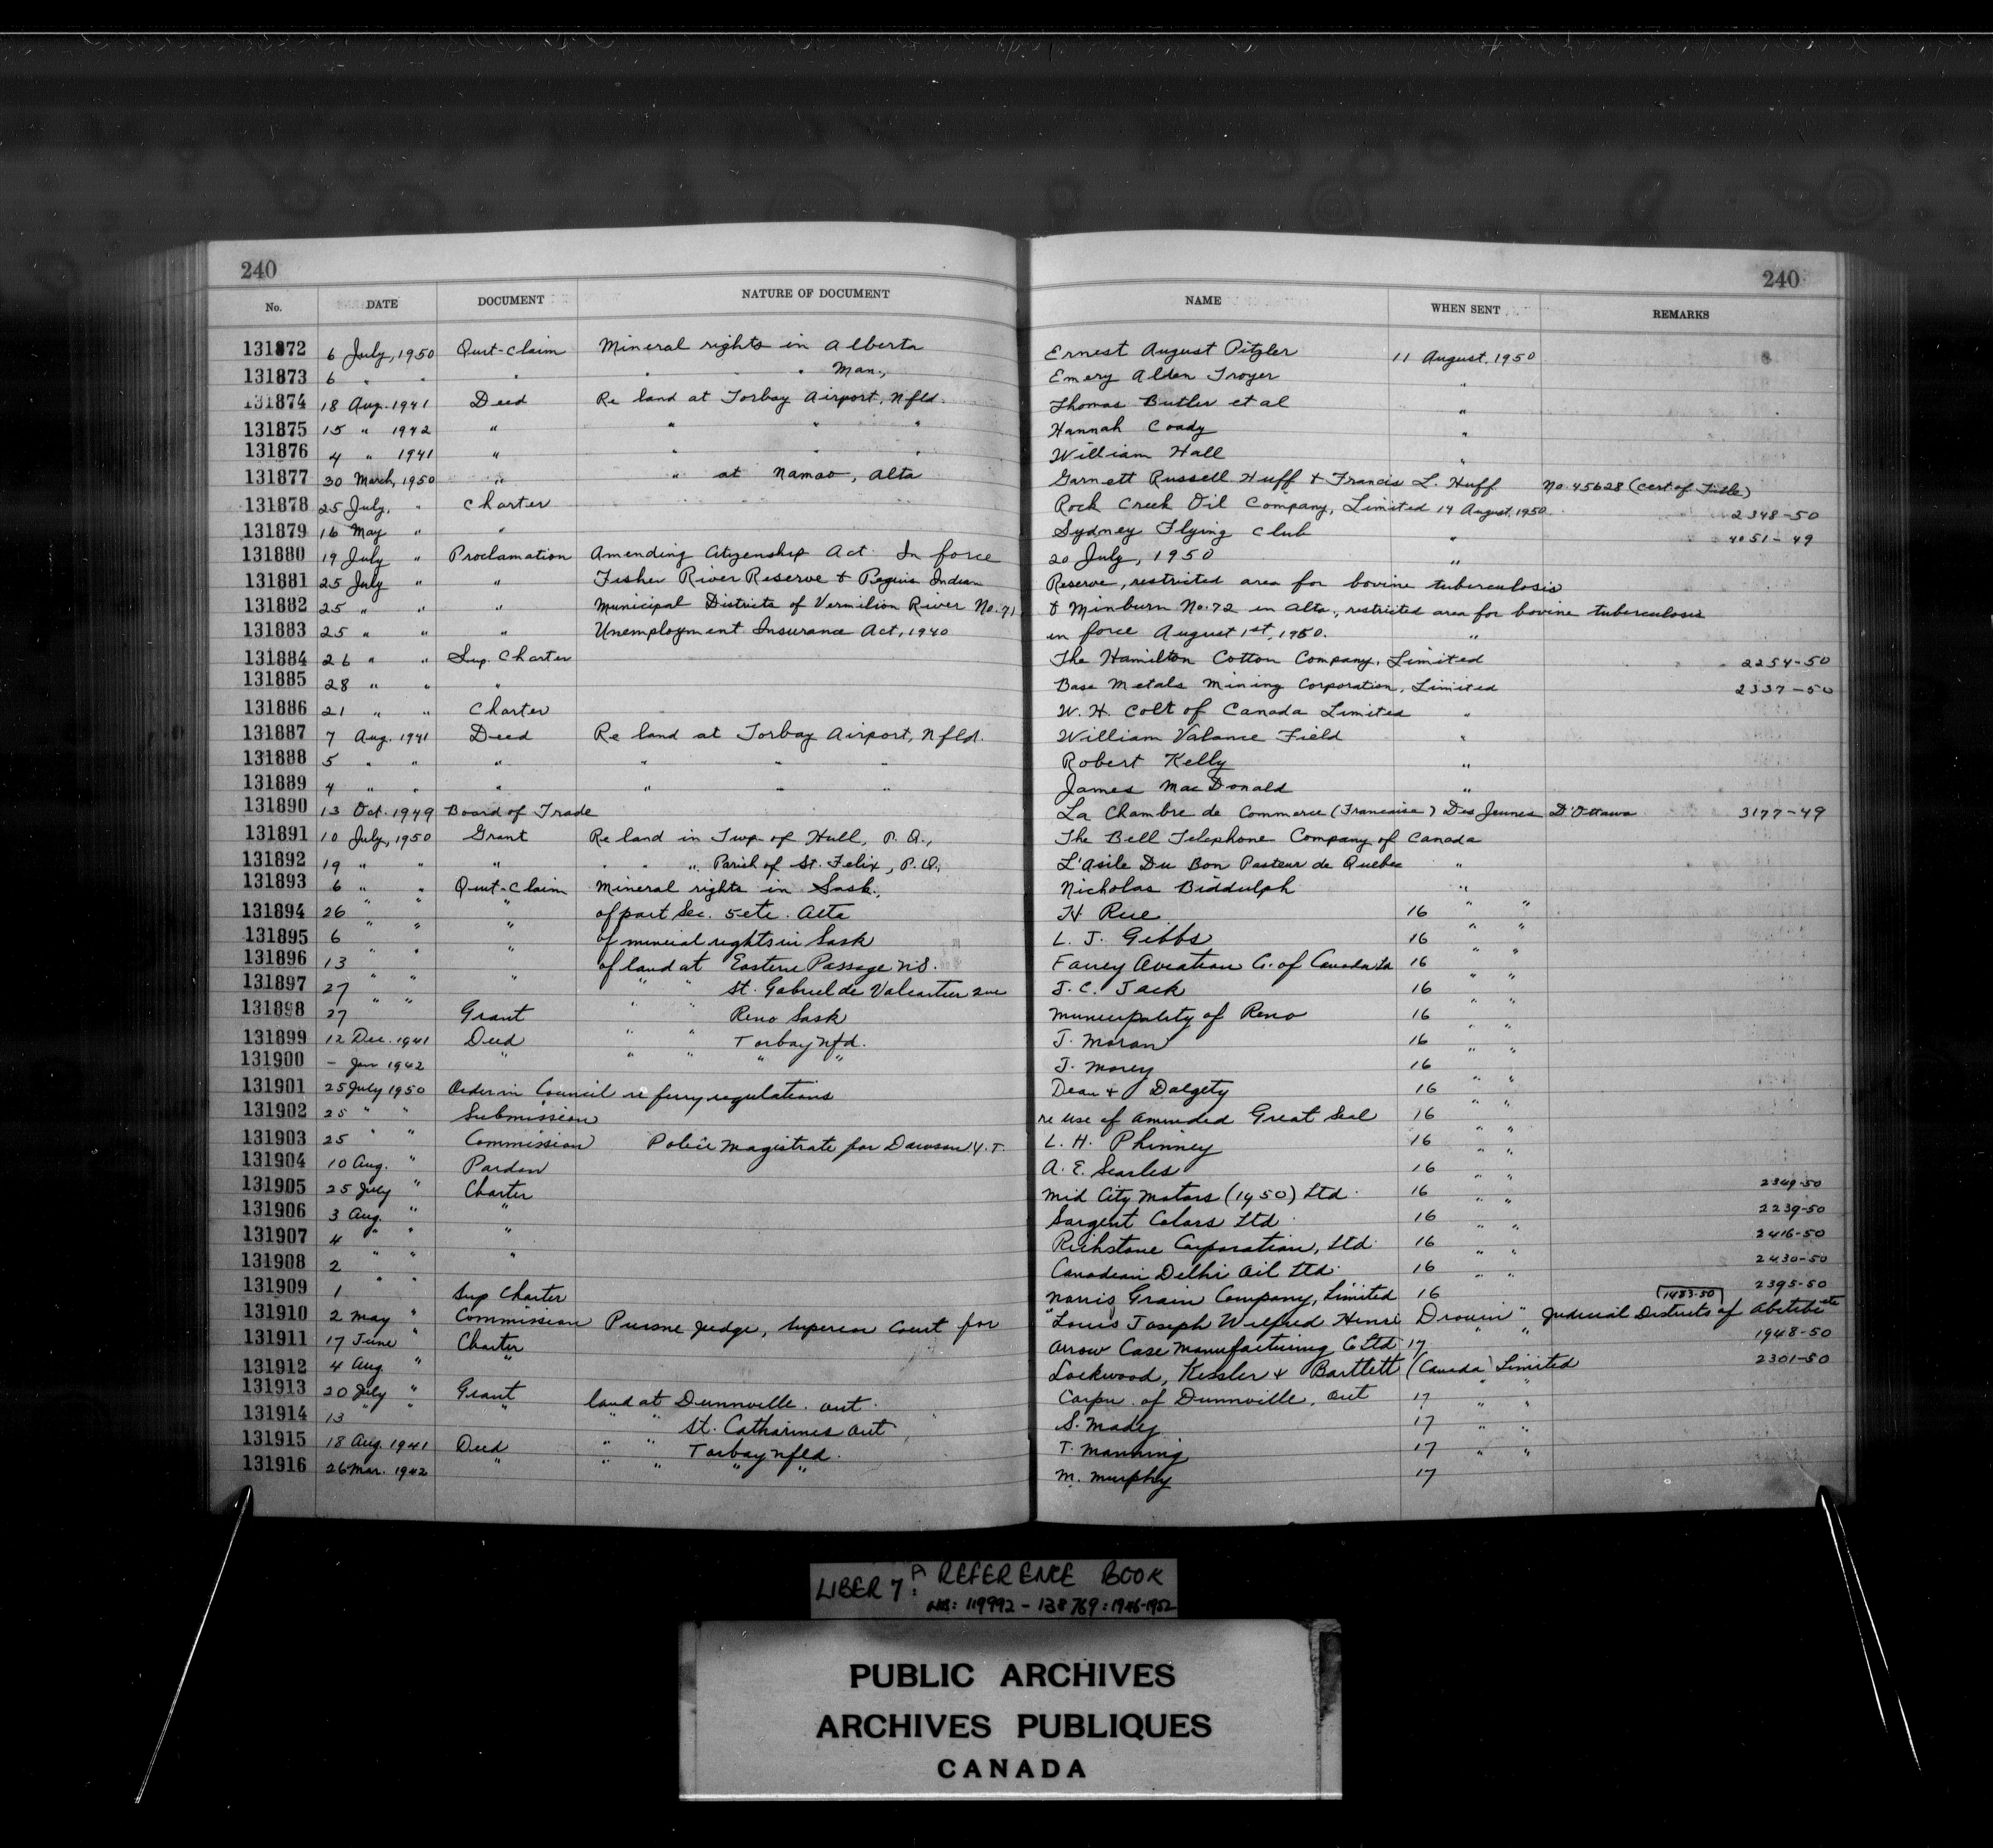 240 240
No. DATE DOCUMENT NATURE OF DOCUMENT NAME WHEN SENT REMARKS
131872 6 July, 1950 Quit-Claim Mineral rights in Alberta Ernest August Pitzler 11 August, 1950
131873 6 " " " " " " Man., Emery Alden Troyer "
131874 18 Aug. 1941 Deed Re land at Torbay Airport, Nfld. Thomas Butler et al "
131875 15 " 1942 " " " " Hannah Coady "
131876 4 " 1941 " " " " William Hall "
131877 30 March, 1950 " " at Namao, Alta Garnett Russell Huff + Francis L. Huff No. 45628 (Cert of Title)
131878 25 July, " Charter Rock Creek Oil Company, Limited 14 August, 1950 2348-50
131879 16 May " " Sydney Flying Club " 4051-49
131880 19 July " Proclamation Amending Citizenship Act. In force 20 July, 1950 "
131881 25 July " " Fisher River Reserve + Peguis Indian Reserve, restricted area for bovine tuberculosis
131882 25 " " " Municipal Districts of Vermilion River No. 71 + Minburn No. 72 in Alta., restricted area for bovine tuberculosis
131883 25 " " " Unemployment Insurance Act, 1940 in force August 1st, 1950. "
131884 26 " " Sup. Charter The Hamilton Cotton Company, Limited 2254-50
131885 28 " " " Base Metals Mining Corporation, Limited 2337-50
131886 21 " " Charter W. H. Colt of Canada Limited "
131887 7 Aug. 1941 Deed Re land at Torbay Airport, Nfld. William Valance Field "
131888 5 " " " " " " Robert Kelly "
131889 4 " " " " " " James MacDonald "
131890 13 Oct. 1949 Board of Trade La Chambre de Commerce (Francaise) Des Jeunes D'Ottawa 3177-49
131891 10 July, 1950 Grant Re land in Twp. of Hull, P.Q., The Bell Telephone Company of Canada
131892 19 " " " " " " Parish of St. Felix, P.Q., L'Asile Du Bon Pasteur de Quebec "
131893 6 " " Quit-Claim Mineral rights in Sask., Nicholas Biddulph "
131894 26 " " " of part Sec. 5 etc. Alta H Rue 16 " "
131895 6 " " " of mineral rights in Sask L. J. Gibbs 16 " "
131896 13 " " " of land at Eastern Passage N.S. Fairey Aviation Co. of Canada Ltd 16 " "
131897 27 " " " " " St. Gabriel de Valcartier Que J. C. Jack 16 " "
131898 27 " " Grant " " Reno Sask Municipality of Reno 16 " "
131899 12 Dec. 1941 Deed " " Torbay Nfd. J. Moran 16 " "
131900 - Jan 1942 " " " " " J. Morey 16 " "
131901 25 July 1950 Order in Council re ferry regulations Dean + Dalgety 16 " "
131902 25 " " Submission re use of amended Great Seal 16 " "
131903 25 " " Commission Police Magistrate for Dawson Y.T. L. H. Phinney 16 " "
131904 10 Aug. " Pardon A. E. Searles 16 " "
131905 25 July " Charter Mid City Motors (1950) Ltd. 16 " " 2349-50
131906 3 Aug. " " Sargent Colors Ltd. 16 " " 2239-50
131907 4 " " " Richstone Corporation, Ltd. 16 " " 2416-50
131908 2 " " " Canadian Delhi Oil Ltd. 16 " " 2430-50
131909 1 " " Sup Charter Norris Grain Company, Limited 16 2395-50
131910 2 May " Commission Puisne Judge, Superior Court for "Louis Joseph Wilfred Henri Drouin" Judicial Districts of Abitibi etc 1483-50
131911 17 June " Charter Arrow Case Manufacturing Co Ltd 17 " " 1948-50
131912 4 Aug. " " Lockwood, Kessler + Bartlett (Canada) Limited 2301-50
131913 20 July " Grant land at Dunnville. Ont. Corpn. of Dunnville, Ont 17 " "
131914 13 " " " " " St. Catharines Ont. S. Mady 17 " "
131915 18 Aug. 1941 Deed " " Torbay Nfld. T. Manning 17 " "
131916 26 Mar. 1942 " " " " " M. Murphy 17
LIBER 7: A REFERENCE BOOK
NOS: 119992 - 138769: 1946-1952
PUBLIC ARCHIVES
ARCHIVES PUBLIQUES
CANADA